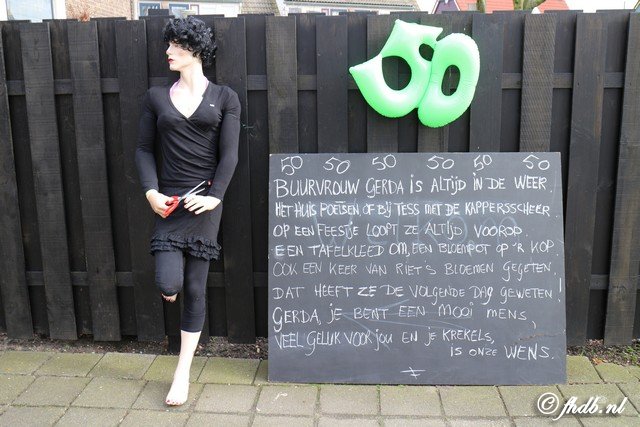 50
50 50 50 50 50 50
BUURVROUW GERDA is ALTIJD IN DE WEER.
HET HUIS POETSEN OF BIJ TESS MET DE KAPPERSSCHEER.
OP EEN FEESTJE LOOPT ZE ALTIJD VOOROP
EEN TAFELKLEED OM, EEN BLOEMPOT OP 'R KOP.
OOK EEN KEER VAN RIET'S BLOEMEN GEGETEN.
DAT HEEFT ZE DE VOLGENDE DAG GEWETEN!
GERDA, je BENT EEN MOOI MENS,
VEEL GELUK VOOR JOU EN je KREKELS,
is onze WENS.
© fhdb.nl